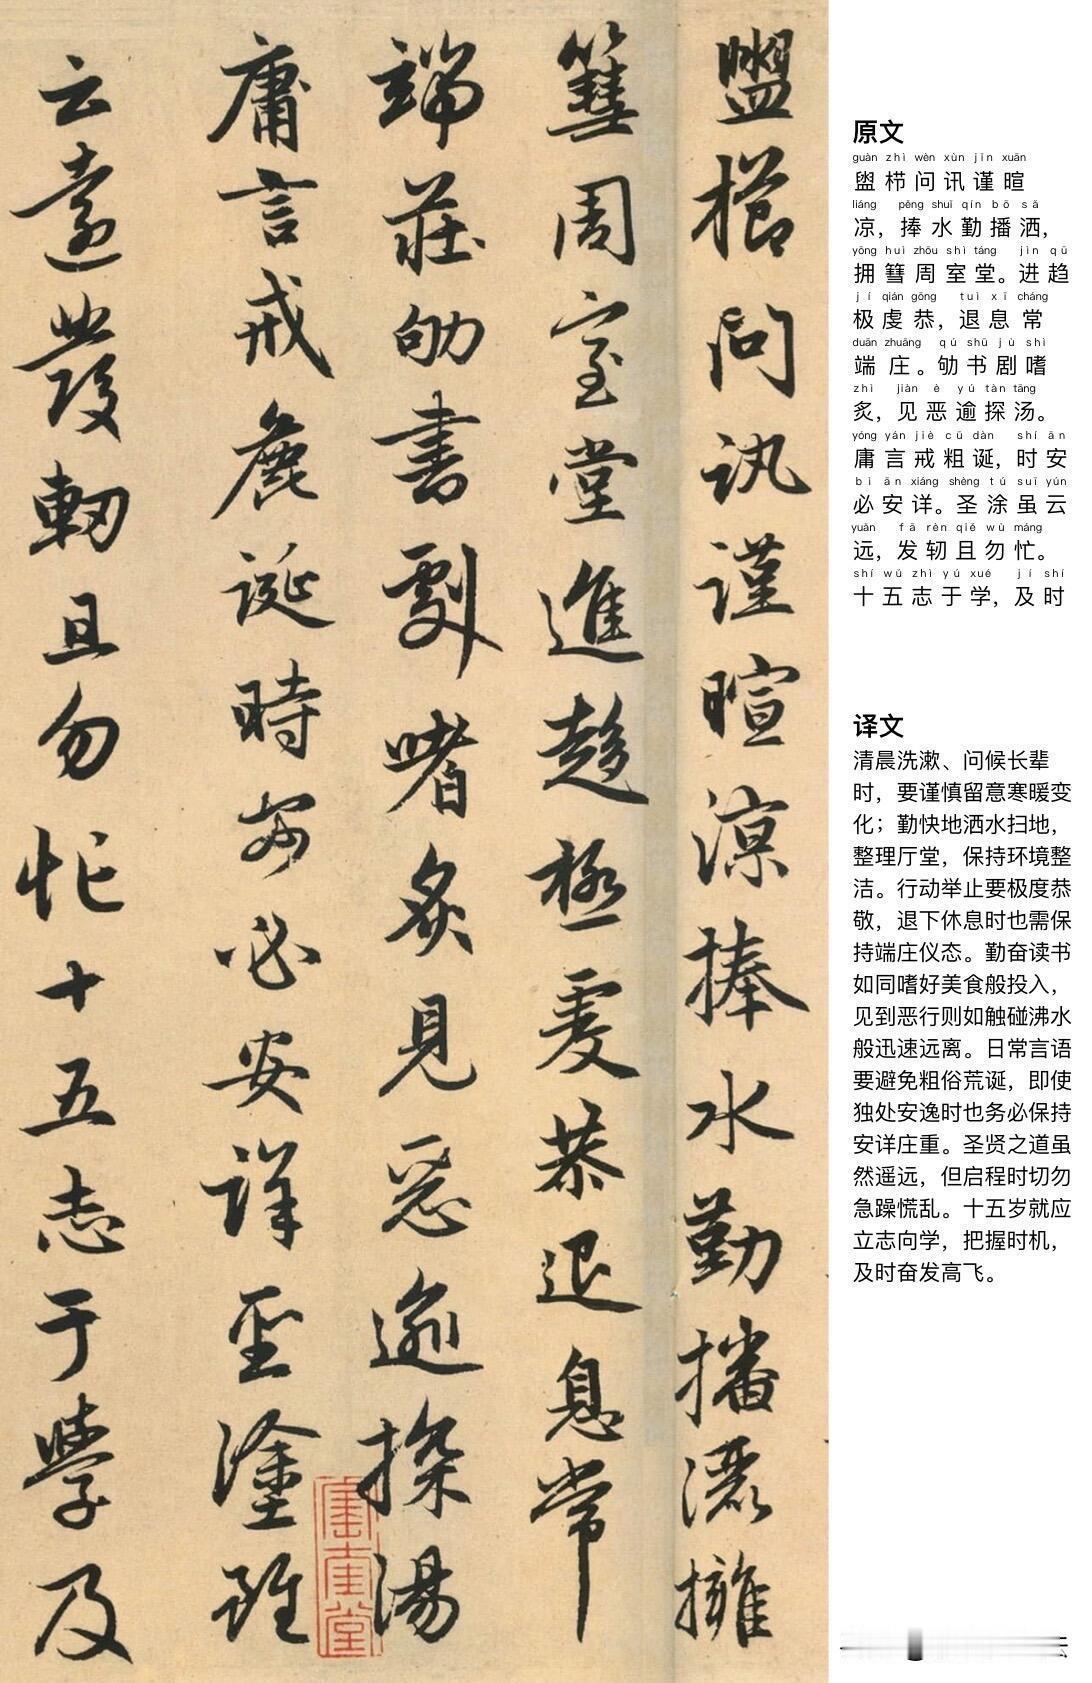 盥櫛問訊謹暄涼捧水勤播灑擁
篲周室堂進趨極虔恭退息常
端莊劬書劇嗜炙見惡逾探湯
庸言戒麁誕時安必安詳聖塗雖
云遠發軔且勿忙十五志于學及
原文
guàn zhì wèn xùn jǐn xuān
盥栉问讯谨暄
liáng pěng shuǐ qín bō sǎ
凉，捧水勤播洒，
yōng huì zhōu shì táng jìn qū
拥篲周室堂。进趋
jí qián gōng tuì xī cháng
极虔恭，退息常
duān zhuāng qú shū jù shì
端庄。劬书剧嗜
zhì jiàn è yú tàn tāng
炙，见恶逾探汤。
yóng yán jiè cū dàn shí ān
庸言戒粗诞，时安
bì ān xiáng shèng tú suī yún
必安详。圣涂虽云
yuǎn fā rèn qiě wù máng
远，发轫且勿忙。
shí wǔ zhì yú xué jí shí
十五志于学，及时
译文
清晨洗漱、问候长辈
时，要谨慎留意寒暖变
化；勤快地洒水扫地，
整理厅堂，保持环境整
洁。行动举止要极度恭
敬，退下休息时也需保
持端庄仪态。勤奋读书
如同嗜好美食般投入，
见到恶行则如触碰沸水
般迅速远离。日常言语
要避免粗俗荒诞，即使
独处安逸时也务必保持
安详庄重。圣贤之道虽
然遥远，但启程时切勿
急躁慌乱。十五岁就应
立志向学，把握时机，
及时奋发高飞。